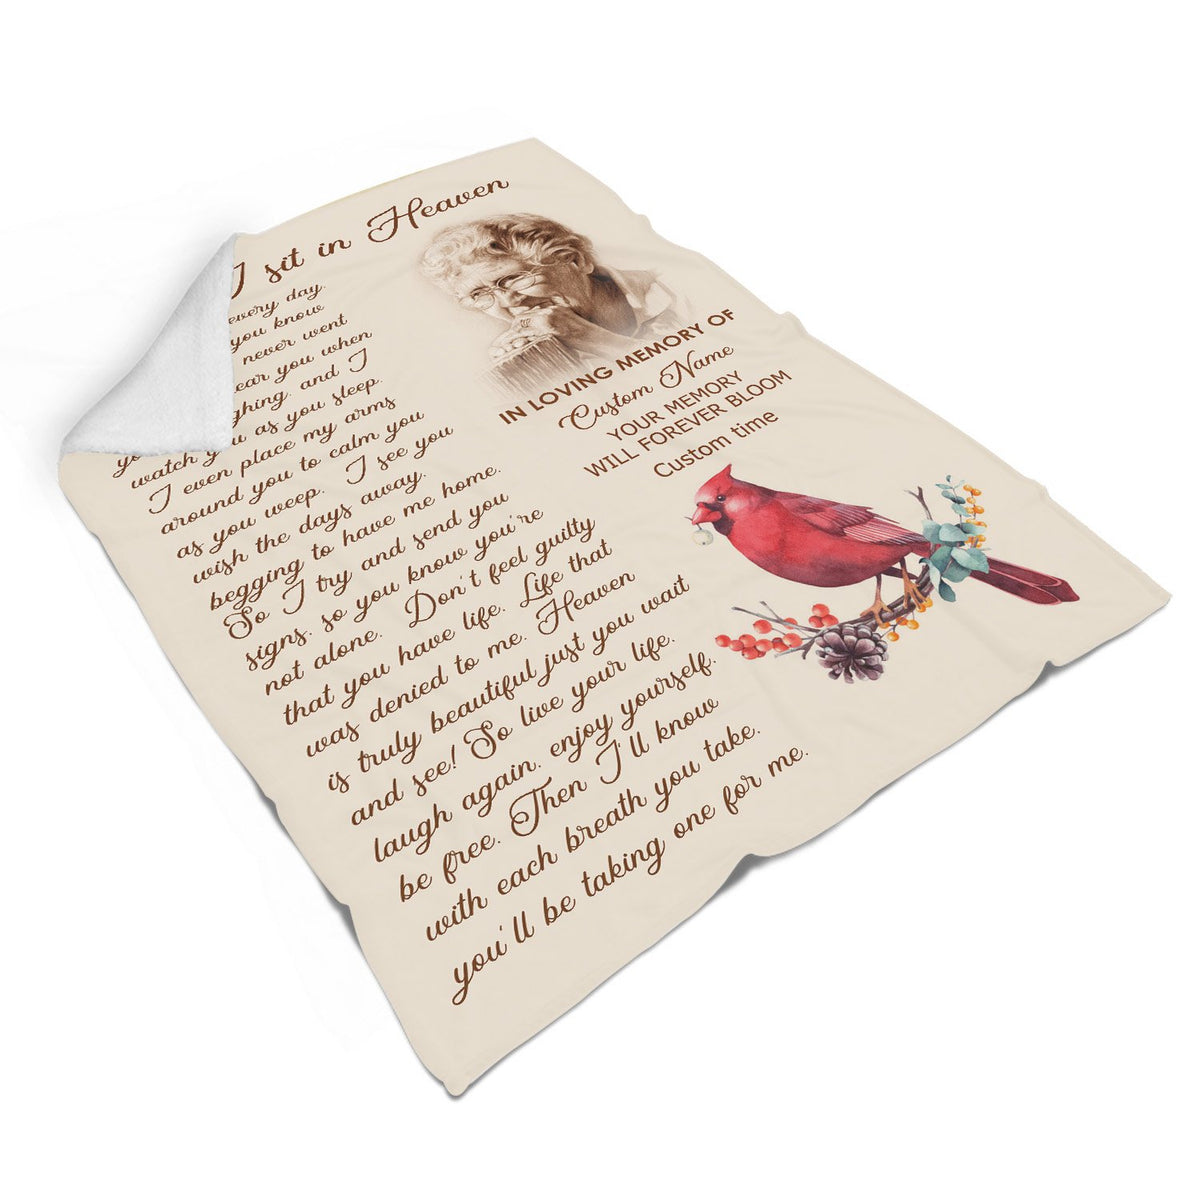 I sit in Heaven
every day.
you know
never went
you when
and I
watch you as you sleep.
I even place my arms
around you to calm you
as you weep. I see you
wish the days away.
begging to have me home.
So I try and send you
signs. so you know you're
not alone. Don't feel guilty
that you have life. Life that
was denied to me. Heaven
is truly beautiful just you wait
and see! So live your life.
laugh again. enjoy yourself.
be free. Then I'll know
with each breath you take.
you'll be taking one for me.
IN LOVING MEMORY OF
Custom Name
YOUR MEMORY
WILL FOREVER BLOOM
Custom time